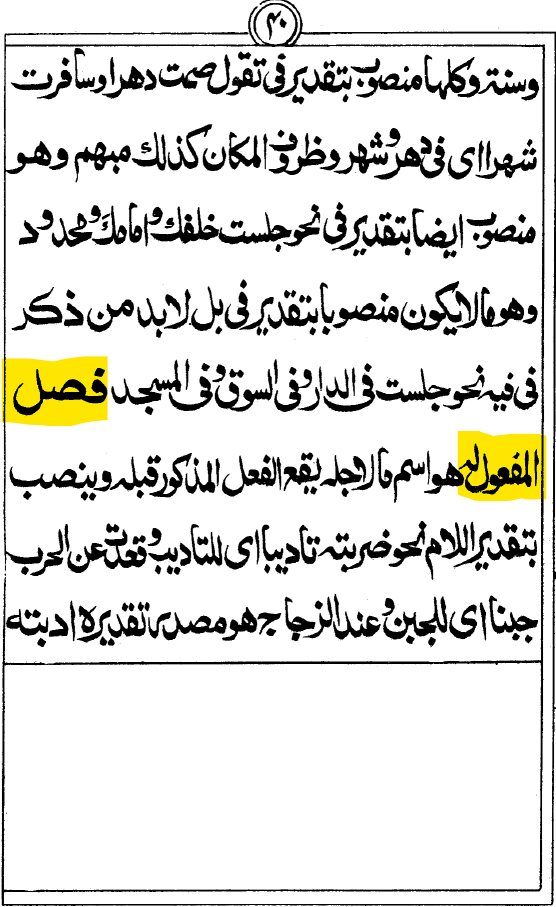 ۴۰
وسنة وكلها منصوب بتقدير في تقول صمت دهرا وسافرت
شهرا اي في دهر وشهر وظروف المكان كذلك مبهم وهو
منصوب ايضا بتقدير في نحو جلست خلفك وامامك ومحدود
وهو مالا يكون منصوبا بتقدير في بل لابد من ذكر
في فيه نحو جلست في الدار وفي السوق وفي المسجد فصل
المفعول له هو اسم مالاجله يقع الفعل المذكور قبله وينصب
بتقدير اللام نحو ضربته تاديبا اي للتاديب وقعدت عن الحرب
جبنا اي للجبن وعند الزجاج هو مصدر تقديره ادبته